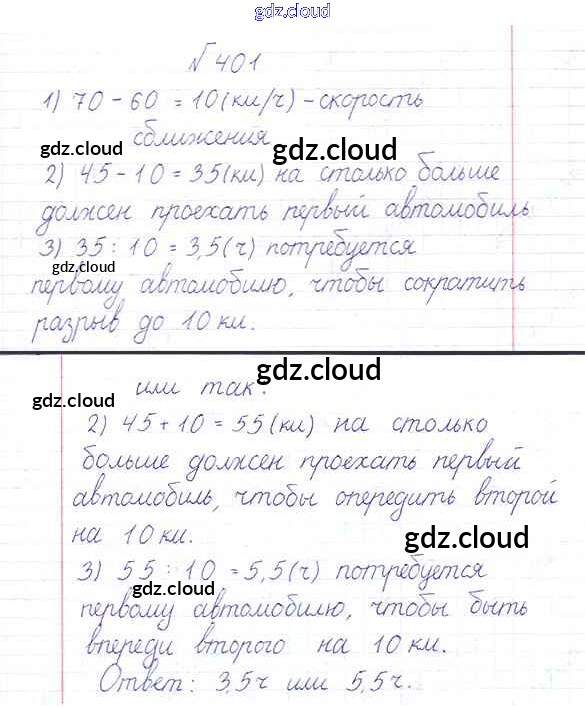 gdz.cloud
№ 401
1) 70 - 60 = 10 (км/ч) - скорость
сближения
gdz.cloud
gdz.cloud
2) 45 - 10 = 35 (км) на столько больше
должен проехать первый автомобиль
3) 35 : 10 = 3,5 (ч) потребуется
gdz.cloud
первому автомобилю, чтобы сократить
разрыв до 10 км.
gdz.cloud
или так:
gdz.cloud
2) 45 + 10 = 55 (км) на столько
больше должен проехать первый
автомобиль, чтобы опередить второй
на 10 км.
gdz.cloud
3) 55 : 10 = 5,5 (ч) потребуется
gdz.cloud
первому автомобилю, чтобы быть
впереди второго на 10 км.
Ответ: 3,5 ч или 5,5 ч.